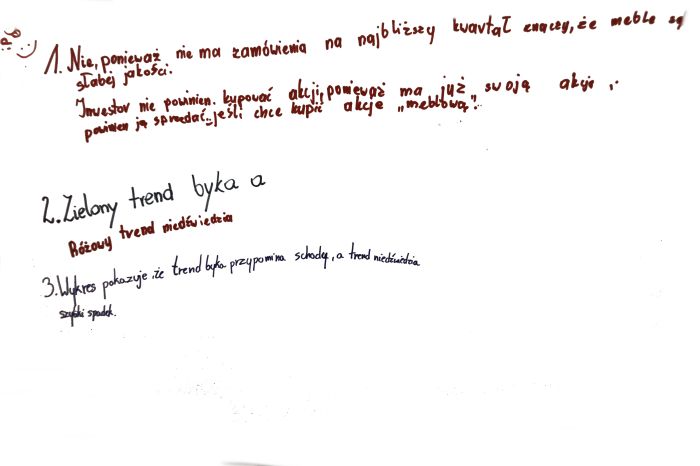 :)
1. Nie, ponieważ nie ma zamówienia na najbliższy kwartał znaczy, że meble są
słabej jakości.
Inwestor nie powinien kupować akcji, ponieważ ma już swoją akcje i
powinien ją sprzedać jeśli chce kupić akcje „meblową".
2. Zielony trend byka a
Różowy trend niedźwiedzia
3. Wykres pokazuje że trend byka przypomina schody, a trend niedźwiedzia
szybki spadek.